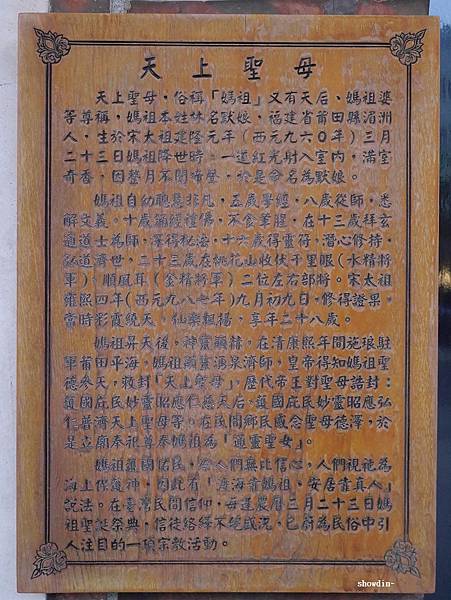 天上聖母
天上聖母，俗稱「媽祖」又有天后、媽祖婆
等尊稱，媽祖本姓林名默娘，福建省莆田縣湄洲
人，生於宋太祖建隆元年（西元九六０年）三月
二十三日媽祖降世時，一道紅光射入室內，滿室
奇香，因整月不聞啼聲，於是命名為默娘。
媽祖自幼聰慧非凡，五歲學經，八歲從師，悉
解文義。十歲誦經禮佛，不食葷腥，在十三歲拜玄
通道士為師，澤得秘法，十六歲得靈符，潛心修持，
弘道濟世，二十三歲在桃花山收伏千里眼（水精將
軍）、順風耳（金精將軍）二位左右部將。宋太祖
雍熙四年(西元九八七年)九月初九日，修得證果，
當時彩霞繞天，仙樂飄揚，享年二十八歲。
媽祖昇天後，神靈顯赫，在清康熙年間施琅駐
軍莆田平海，媽祖顯靈湧泉濟師，皇帝得知媽祖聖
德參天，敕封「天上聖母」，歷代帝王對聖母誥封：
護國庇民妙靈昭應仁慈天后，護國庇民妙靈昭應弘
仁普濟天上聖母等，在民間鄉民感念聖母德澤，於
是立廟奉祀尊奉媽祖為「通靈聖女」。
媽祖護國佑民，給人們無比信心，人們視祂為
海上保護神，因此有「渡海靠媽祖，安居靠真人」
說法。在臺灣民間信仰，每逢農曆三月二十三日媽
祖聖誕祭典，信徒絡繹不絕盛況，已蔚為民俗中引
人注目的一項宗教活動。
showdin-